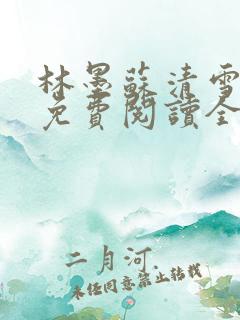 林墨蘇清雪
免費閱讀全
二月河
未經同意禁止轉載